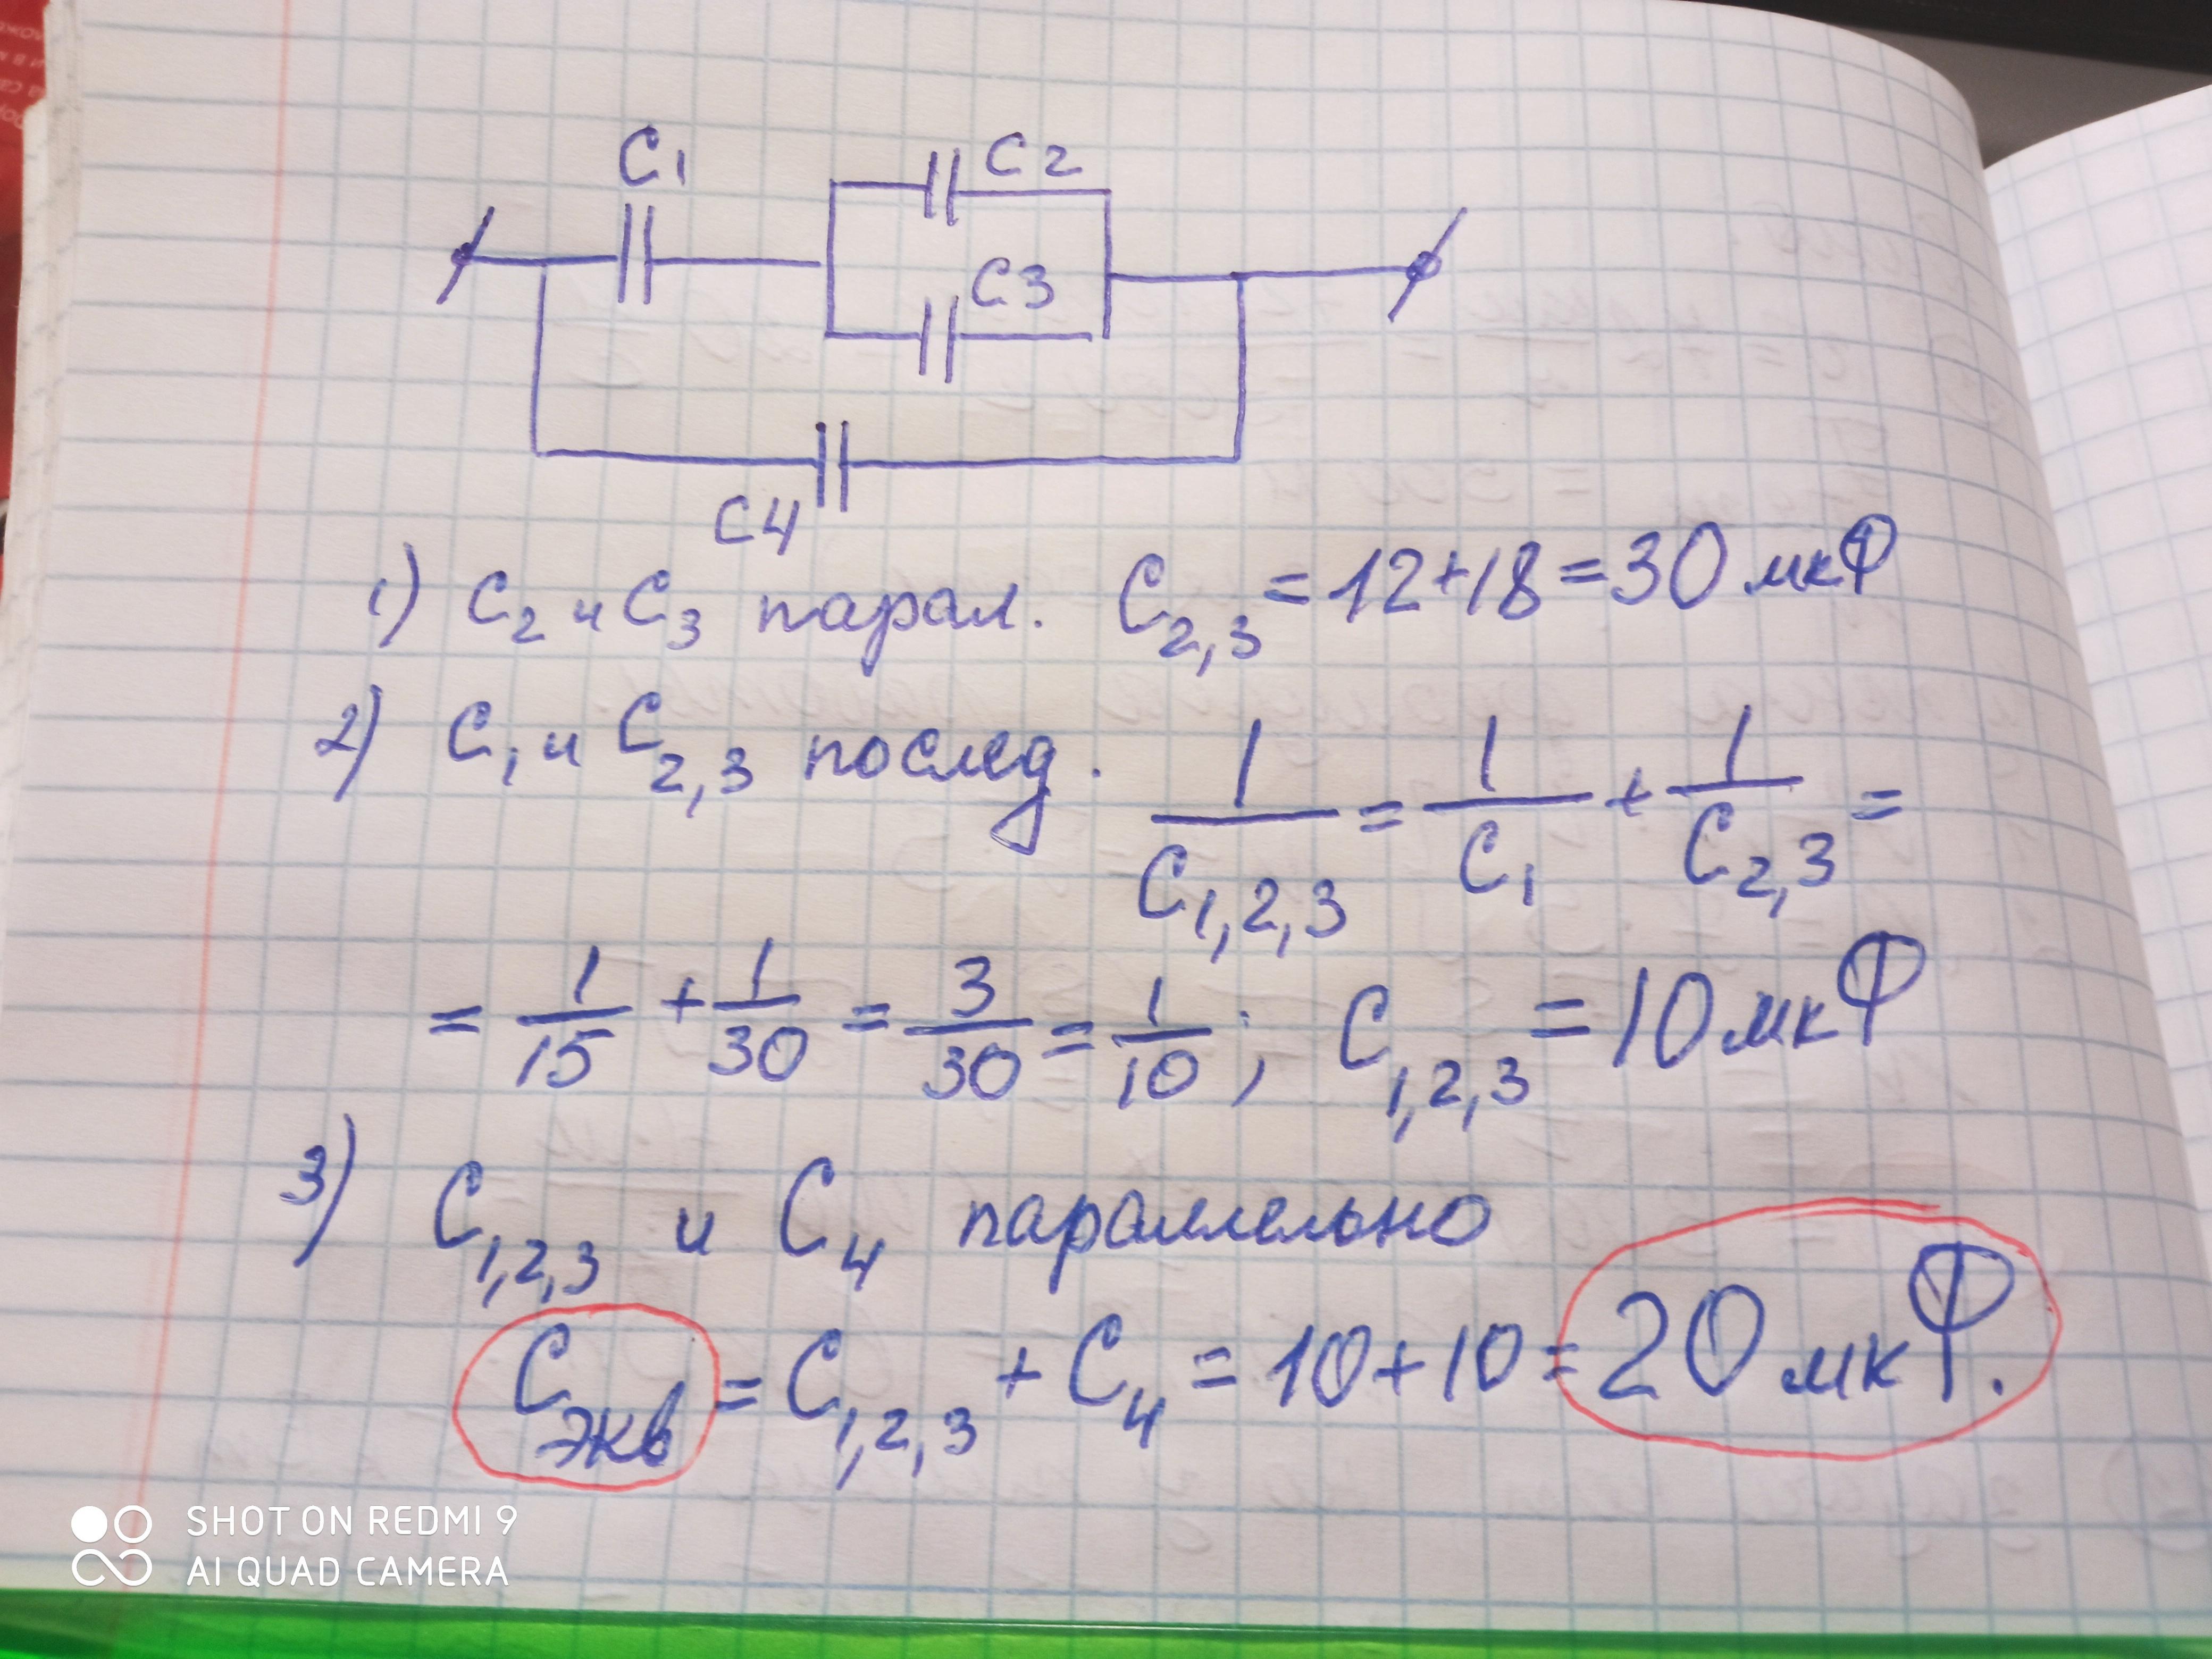 C1
C2
C3
C4
1) C2 и C3 парал. C2,3 = 12+18 = 30 мкФ
2) C1 и C2,3 послед. 1/C1,2,3 = 1/C1 + 1/C2,3 =
= 1/15 + 1/30 = 3/30 = 1/10; C1,2,3 = 10 мкФ
3) C1,2,3 и C4 параллельно
Cэкв = C1,2,3 + C4 = 10+10 = 20 мкФ.
SHOT ON REDMI 9
AI QUAD CAMERA